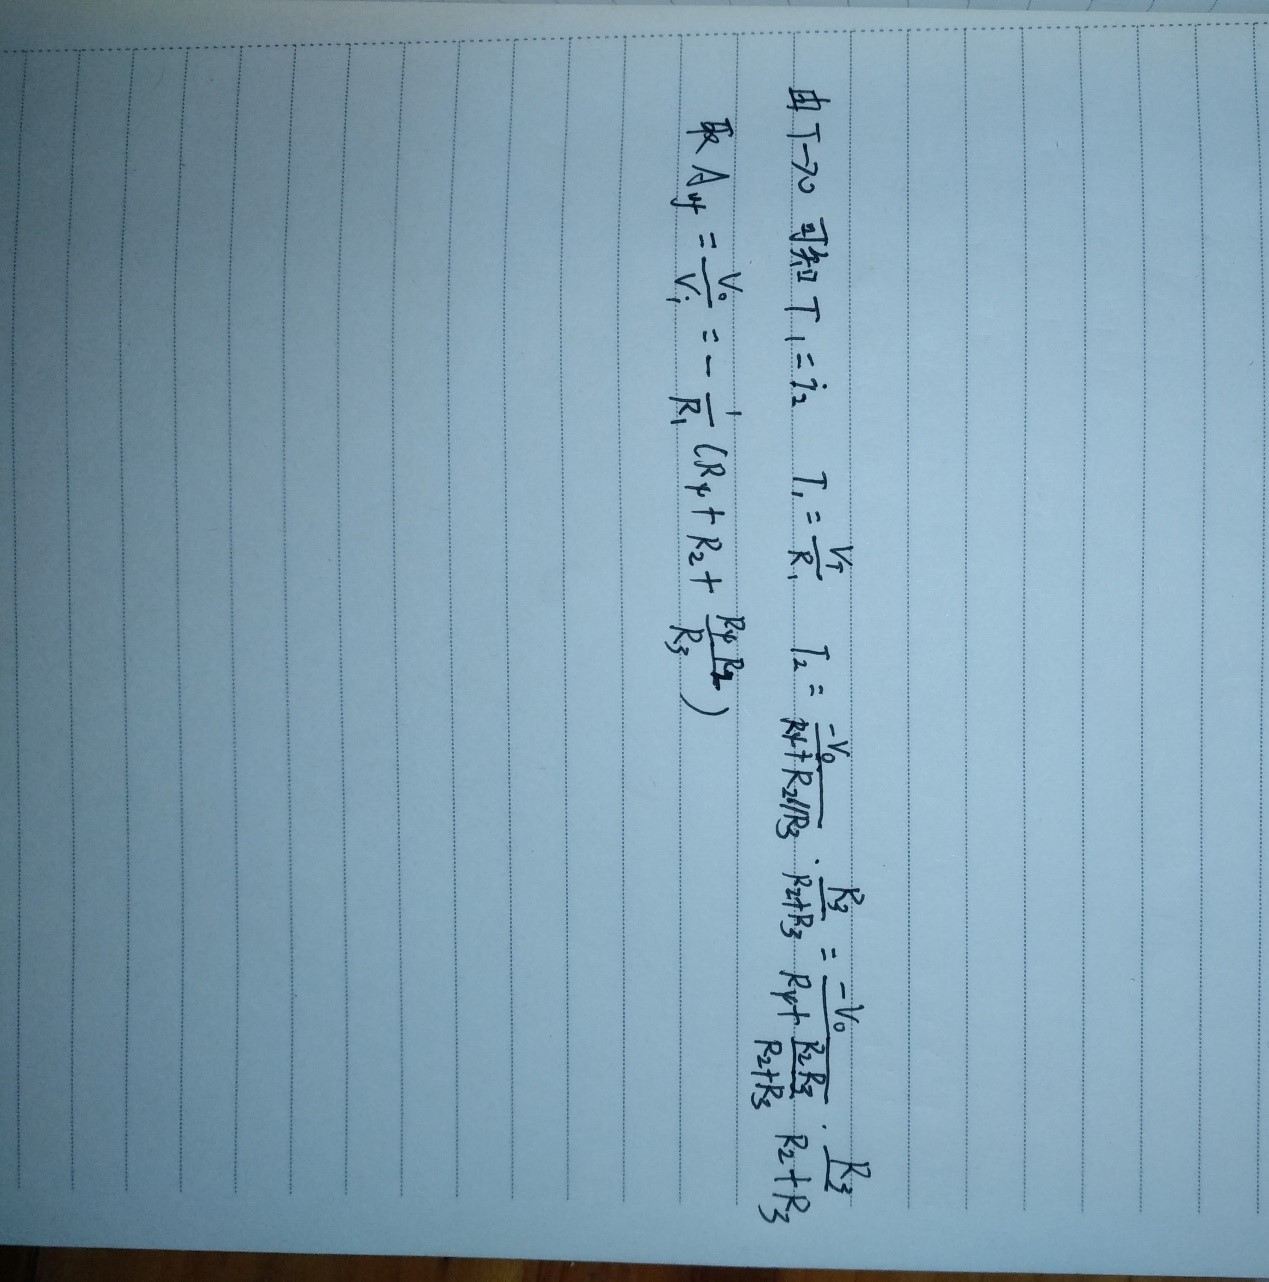 由T→0 可知 T₁=i₂ T₁=V_T/R₁ T₂=-V₀/(R₄+R₂//R₃)·R₃/(R₂+R₃)=-V₀/(R₄+R₂R₃/(R₂+R₃))·R₃/(R₂+R₃)
取 A_uf=V₀/V_i=-1/R₁(R₄+R₂+R₄R₂/R₃)